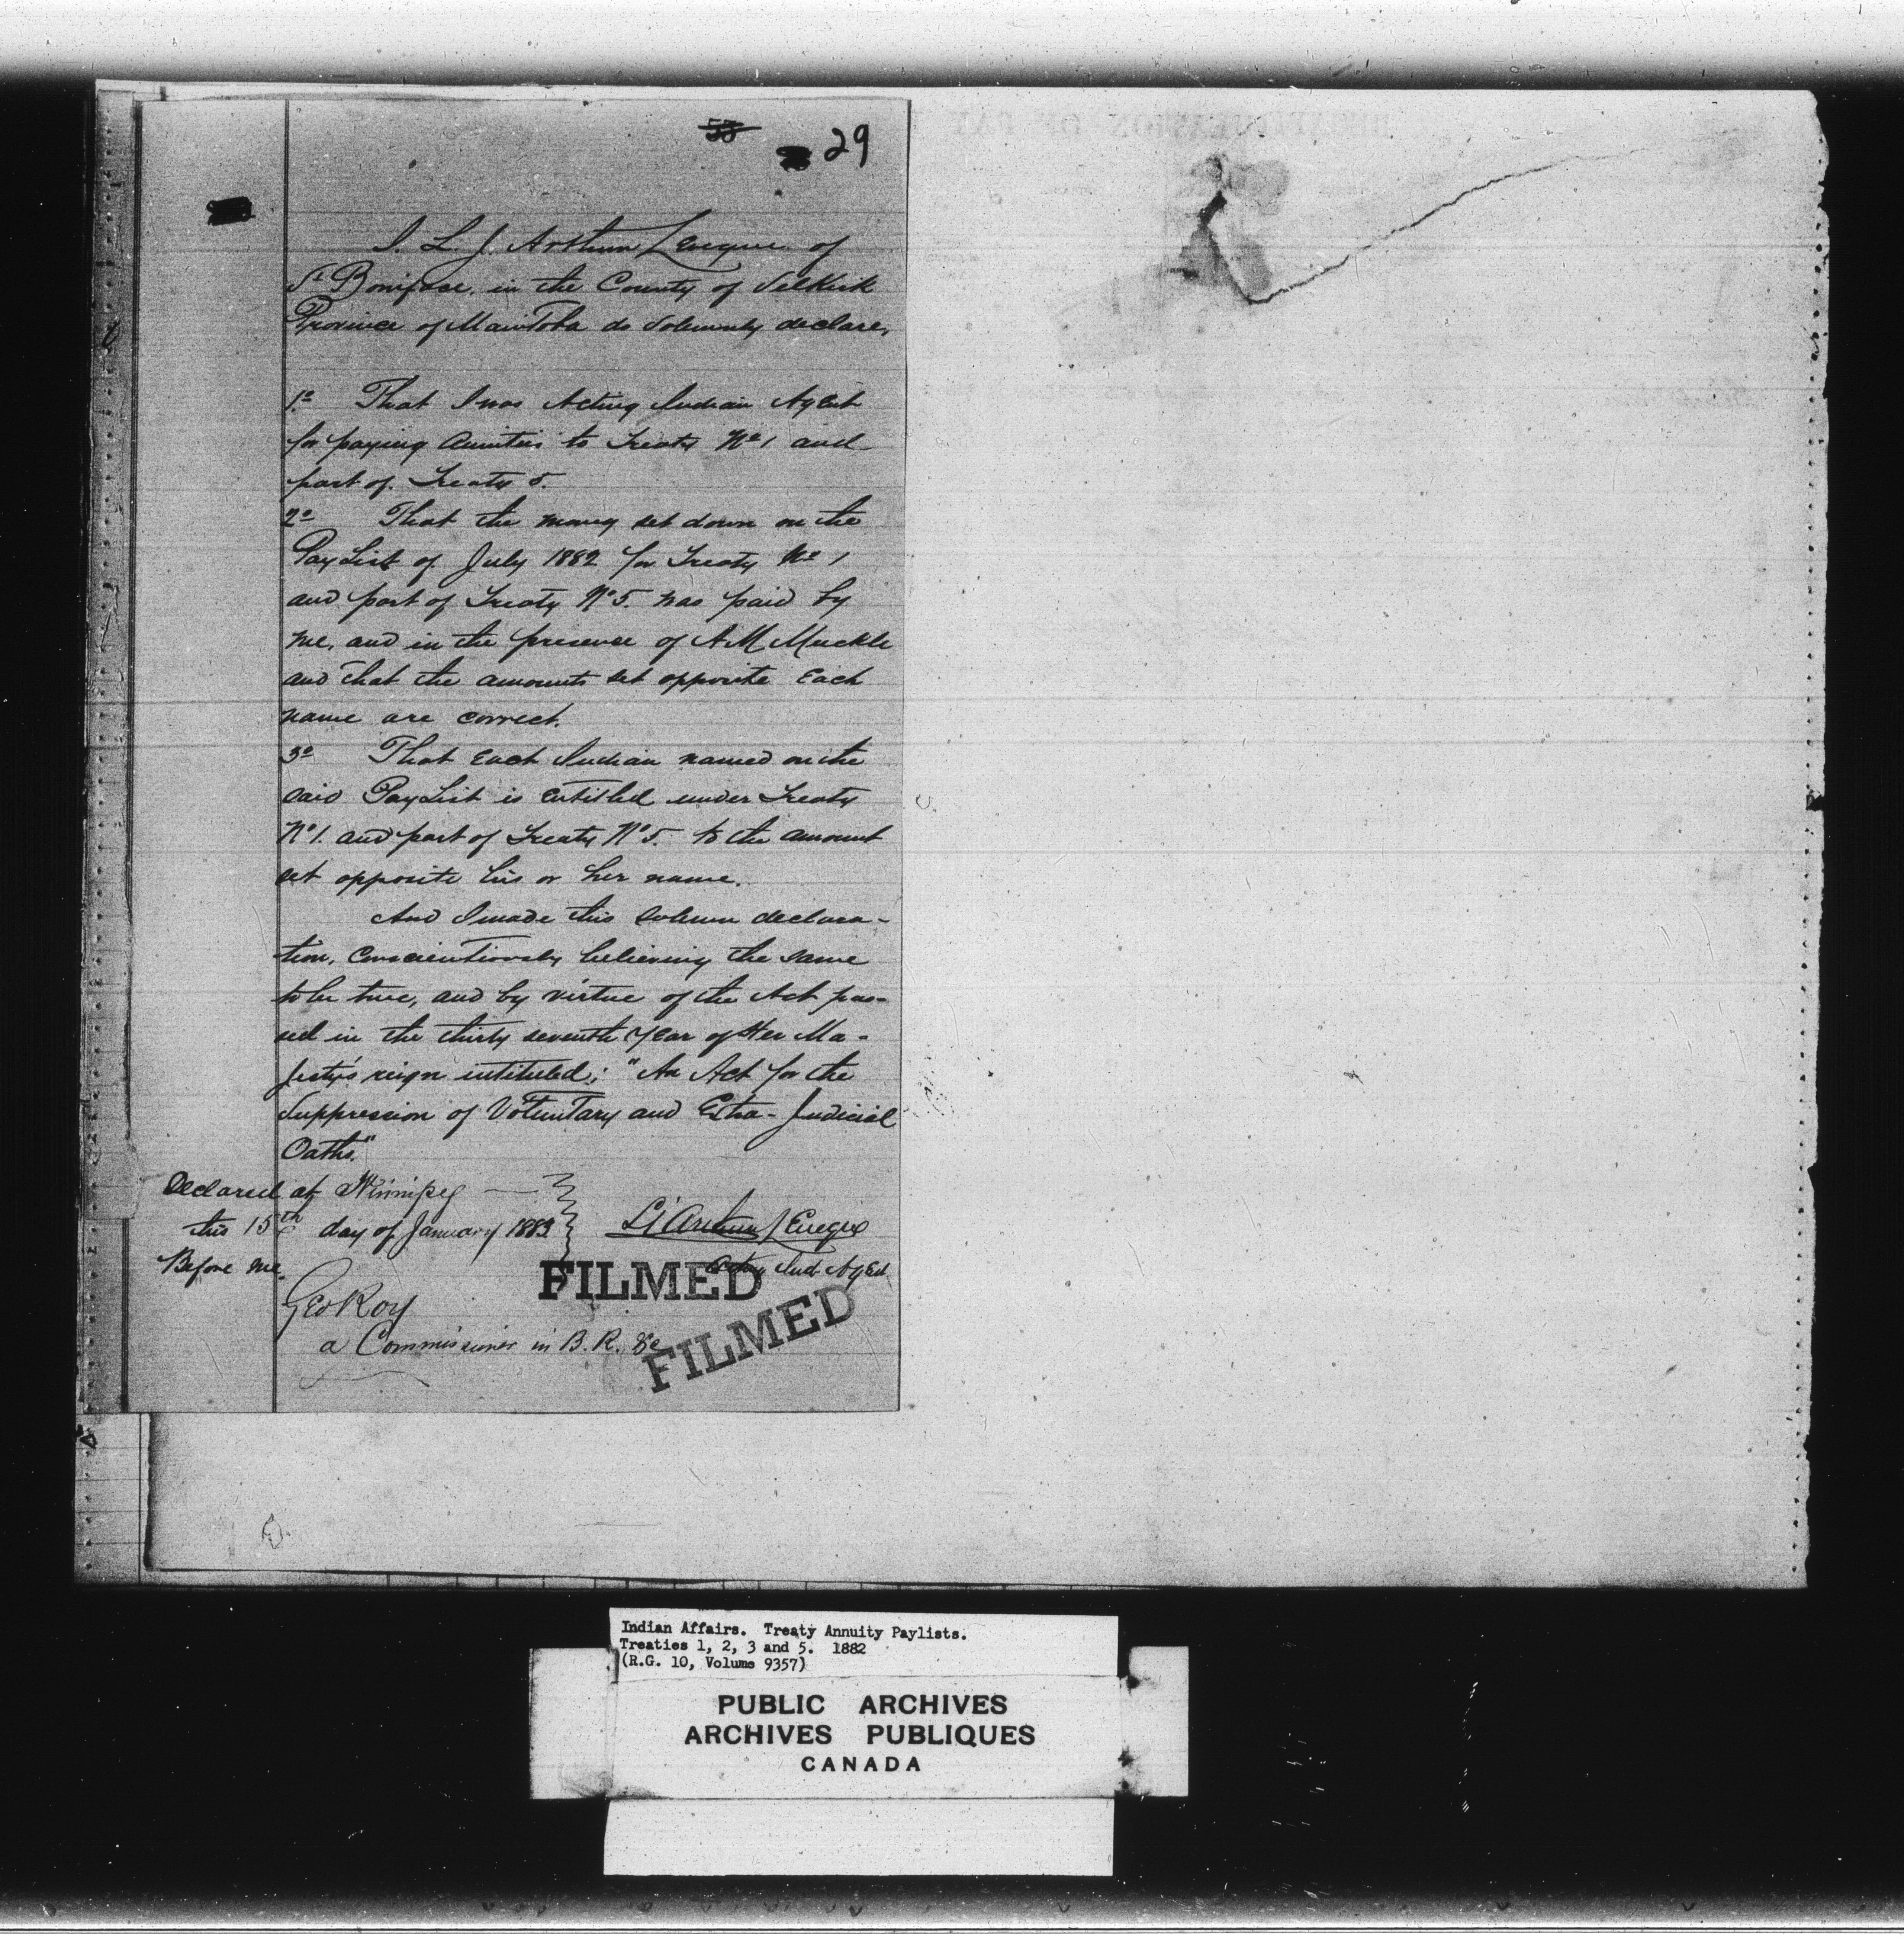 29
I. L. J. Arthur Leveque of
St Boniface, in the County of Selkirk
Province of Manitoba do Solemnly declare,
1o That I was Acting Indian Agent
for paying Annuities to Treaty No 1 and
part of Treaty 5.
2o That the money set down on the
Pay List of July 1882 for Treaty No 1
and part of Treaty No 5. was paid by
me, and in the presence of A M Muckle
and that the amounts set opposite Each
name are correct.
3o That Each Indian named on the
said Pay List is entitled under Treaty
No 1. and part of Treaty No 5. to the amount
set opposite his or her name.
And I made this Solemn declara-
tion, Conscientiously believing the same
to be true, and by virtue of the Act pas-
sed in the thirty seventh Year of Her Ma-
jesty's reign intituled; "An Act for the
Suppression of Voluntary and Extra-Judicial
Oaths."
Declared at Winnipeg
this 15th day of January 1883
Before me,
L J Arthur Leveque
Acting Ind. Agent
Geo Roy
a Commissioner in B. R. &c
FILMED
FILMED
Indian Affairs. Treaty Annuity Paylists.
Treaties 1, 2, 3 and 5. 1882
(R.G. 10, Volume 9357)
PUBLIC ARCHIVES
ARCHIVES PUBLIQUES
CANADA